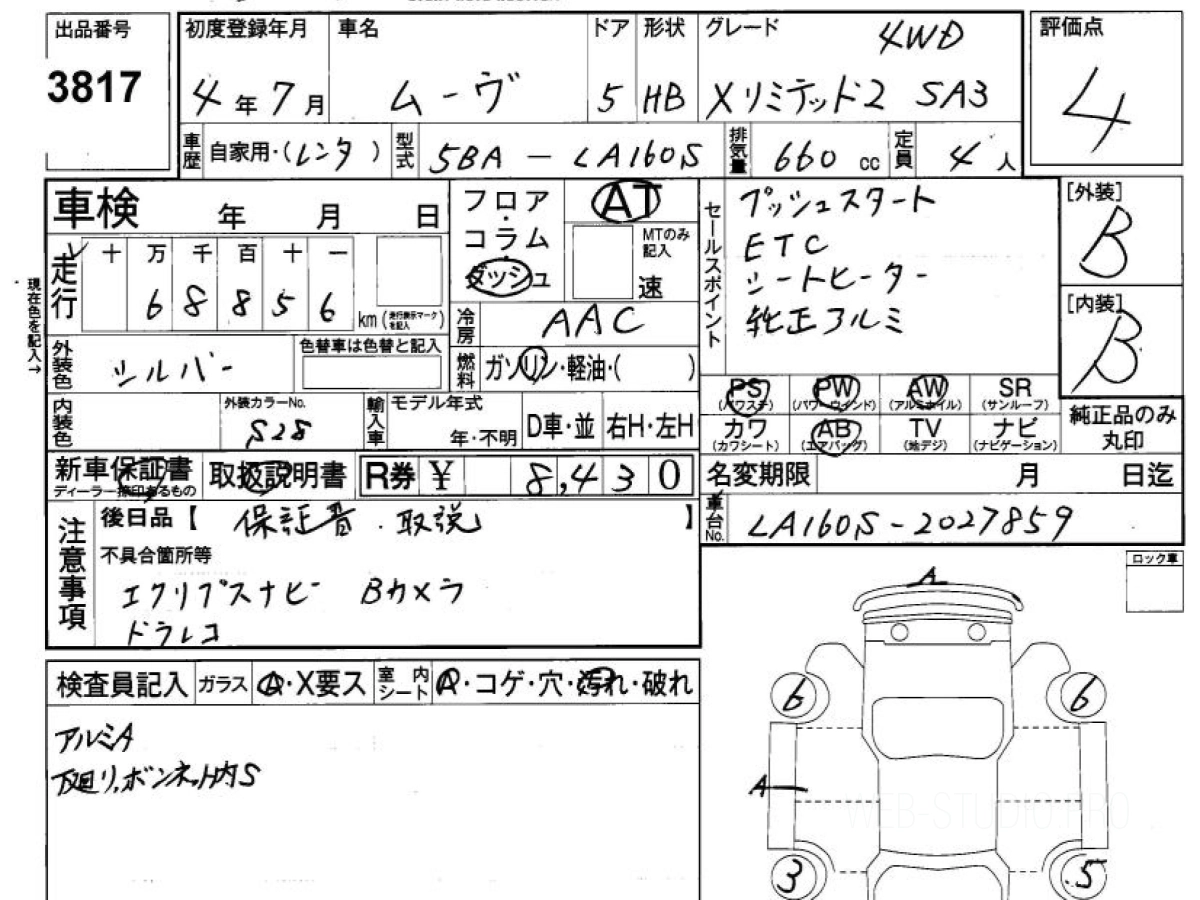 出品番号
3817
初度登録年月
4年7月
車名
ムーヴ
ドア
5
形状
HB
グレード
4WD
Xリミテッド2 SA3
評価点
4
車歴
自家用・(レンタ)
型式
5BA-LA160S
排気量
660cc
定員
4人
車検 年 月 日
走行
十 万 千 百 十 一
6 8 8 5 6
km(走行表示マークを記入)
現在色を記入→
フロア・
コラム・
ダッシュ
AT
MTのみ記入
速
冷房
AAC
燃料
ガソリン・軽油・( )
外装色
シルバー
色替車は色替と記入
内装色
外装カラーNo.
S28
輸入車
モデル年式
年・不明
D車・並
右H・左H
セールスポイント
プッシュスタート
ETC
シートヒーター
純正アルミ
[外装]
B
[内装]
B
PS PW AW SR
(パワステ) (パワーウインド) (アルミホイル) (サンルーフ)
カワ AB TV ナビ
(カワシート) (エアバッグ) (地デジ) (ナビゲーション)
純正品のみ
丸印
新車保証書
ディーラー捺印あるもの
取扱説明書
R券 ¥ 8,430
名変期限 月 日迄
車台No.
LA160S-2027859
注意事項
後日品【 保証書・取説 】
不具合箇所等
エクリプスナビ Bカメラ
ドラレコ
ロック車
検査員記入
ガラス
A・X要ス
室内シート
A・コゲ・穴・汚れ・破れ
アルミA
下廻り,ボンネット内S
A
6 6
A
3 5
WEB-STUDIO.PRO